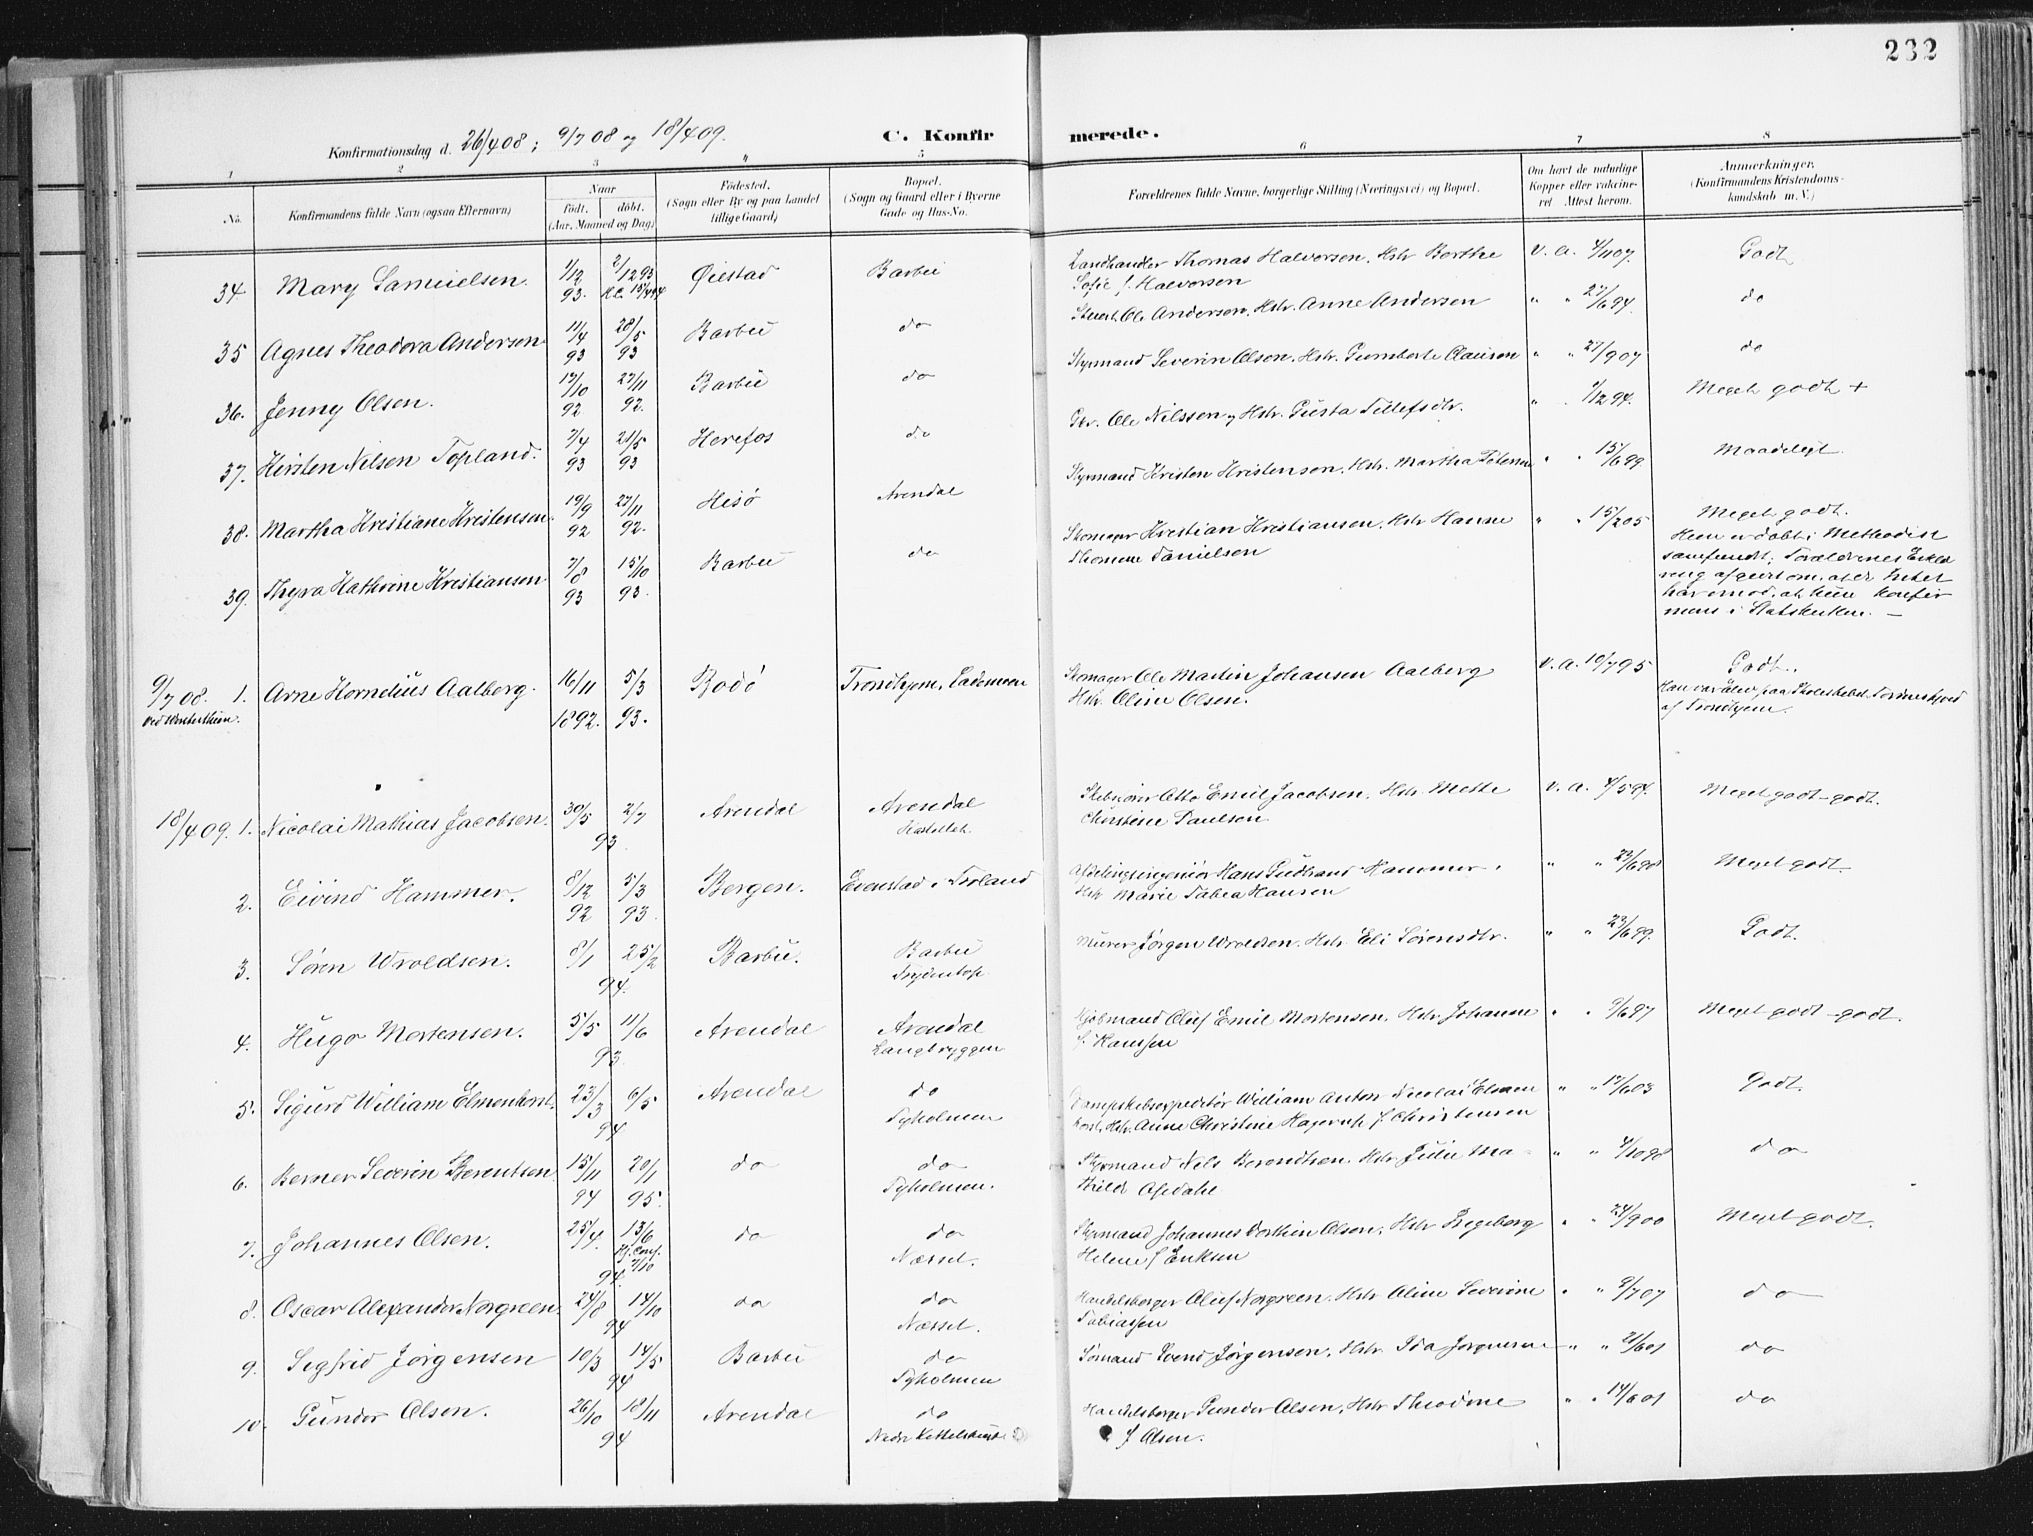 232
Konfirmationsdag d. 26/4 08; 9/7 08 og 18/4 09.
C. Konfirmerede.
1 2 3 4 5 6 7 8
No. Konfirmandens fulde Navn (ogsaa Efternavn)
Naar födt. döbt. (Aar, Maaned og Dag)
Födested. (Sogn eller By og paa Landet tillige Gaard)
Bopæl. (Sogn og Gaard eller i Byerne Gade og Hus-No.
Forældrenes fulde Navne, borgerlige Stilling (Næringsvei) og Bopæl.
Om havt de naturlige Kopper eller vakcineret. Attest herom.
Anmærkninger. (Konfirmandens Kristendomskundskab m. V.)
34 Mary Samuelsen. 1/12 93. 2/12 93 Øiestad Barbu Landhandler Thomas Halvorsen. Hstr Berthe Sofie f. Halvorsen v. a. 4/1107. Godt
35 Agnes Theodora Andersen 11/4 93 28/5 93 Barbu do Stuert. Ole Andersen. Hstr. Anne Andersen " " 27/6 94. do
36. Jenny Olsen. 13/10 92 27/11 92. Barbu do Styrmand Severin Olsen. Hstr. Gumberte Clausen " " 27/907 do
37. Kirsten Nilsen Topland. 7/4 93 21/5 93 Herefos do Gbr. Ole Nilssen og Hstr. Gusta Tellefsdtr. " 1/12 94. Meget godt +
38. Martha Kristiane Kristensen 19/9 92 27/11 92. Hisø Arendal Styrmand Kristen Kristensen. Hstr. Martha Petersen " " 15/699 Maadeligt.
39. Thyra Kathrine Kristiansen 7/8 93 15/10 93. Barbu do Skomager Kristian Kristiansen. Hstr Hanne Thomine Danielsen " " 15/205 Meget godt.
Hun er døbt i Methodist
samfundet; Forældrenes Erklæ
ring afgivet om, at de Intet
har imod, at hun konfir
meres i Statskirken. —
9/7 08. 1. Arne Kornelius Aalberg. 16/11 1892. 5/3 93. Bodö Trondhjem, Lademoen Skomager Ole Martin Johansen Aalberg Hstr. Oline Olsen. v. a. 10/795 Godt.
Han var Elev paa Skoleskibet Tordenskjold
af Trondhjem.
18/4 09. 1. Nicolai Mathias Jacobsen. 30/5 2/7 93. Arendal Arendal Kastellet. Skibsfører Otto Emil Jacobsen. Hstr. Mette Christine Paulsen v. a. 4/594. Meget godt-godt.
2. Eivind Hammer. 8/12 92 5/3 93. Bergen. Evenstad i Froland Afdelingsingeniør Hans Gudbrand Hammer. Hstr Marie Tabea Hansen " " 23/698 Meget godt.
3. Søren Wroldsen. 8/1 25/2 94. Barbu. Barbu Murer Jørgen Wroldsen. Hstr. Eli Sørensdtr. " " 23/699. Godt.
4. Hugo Mortensen. 5/5 11/6 93. Arendal Arendal Langbryggen Kjøbmand Oluf Emil Mortensen. Hstr Johanne f. Hansen " " 9/697 Meget godt-godt.
5. Sigurd William Elmenhorst. 23/3 6/5 94 Arendal do Tyholmen Dampskibsexpeditør William Anton Nicolai Elmen horst. Hstr. Anne Christine Hagerup f. Christensen " " 17/603 Godt.
6. Berner Severin Berentsen 15/11 94 20/1 95. do do Tyholmen. Styrmand Nils Berendtsen. Hstr Julie Ma- thilde Opdahl " " 4/1098 do
7. Johannes Olsen. 25/4. 13/6 94. do do Næsset. Styrmand Johannes Olsen. Hstr Ingeborg Helene f Eriksen " " 24/900 Meget godt.
8. Oscar Alexander Norgreen. 24/8 14/10 94 do do Næsset. Handelsborger Oluf Norgreen. Hstr Oline Severine Tobiassen " " 3/707 do
9. Segfrid Jørgensen 10/3 14/5 94 Barbu do Tyholmen Sømand Svend Jørgensen. Hstr. Ida Jørgensen " " 21/601 do
10. Gunder Olsen. 26/10 18/11 94 Arendal do Handelsborger Gunder Olsen. Hstr Theodine f Olsen. " " 14/601 do